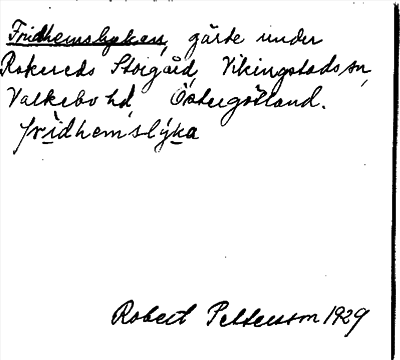 Fridhemslyckan, gärde under
Rakereds Storgård, Vikingstads sn,
Valkebo hd, Östergötland.
fridhemslýka
Robert Pettersson 1929